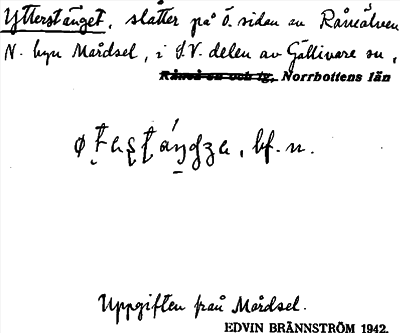 Ytterstänget, slåtter på Ö. sidan av Råneälven
N. byn Mårdsel, i S.V. delen av Gällivare sn,
Råneå sn och tg, Norrbottens län
bf. n.
Uppgiften från Mårdsel.
EDVIN BRÄNNSTRÖM 1942.